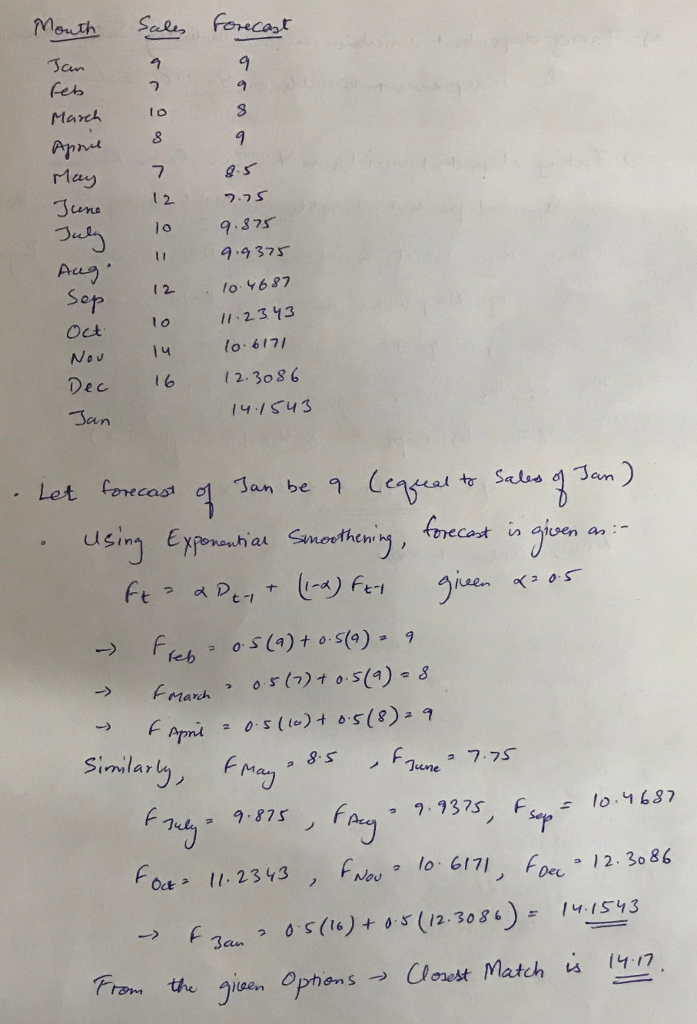 Month Sales Forecast
Jan 9 9
Feb 7 9
March 10 8
April 8 9
May 7 8.5
June 12 7.75
July 10 9.875
Aug. 11 9.9375
Sep 12 10.4687
Oct 10 11.2343
Nov 14 10.6171
Dec 16 12.3086
Jan 14.1543
• Let forecast of Jan be 9 (equal to Sales of Jan)
• Using Exponential Smoothening, forecast is given as :-
Ft = α Dt-1 + (1-α) Ft-1 given α = 0.5
→ F Feb = 0.5(9) + 0.5(9) = 9
→ F March = 0.5(7) + 0.5(9) = 8
→ F April = 0.5(10) + 0.5(8) = 9
Similarly, F May = 8.5 , F June = 7.75
F July = 9.875 , F Aug = 9.9375, F Sep = 10.4687
F Oct = 11.2343 , F Nov = 10.6171, F Dec = 12.3086
→ F Jan = 0.5(16) + 0.5(12.3086) = 14.1543
From the given Options → Closest Match is 14.17.